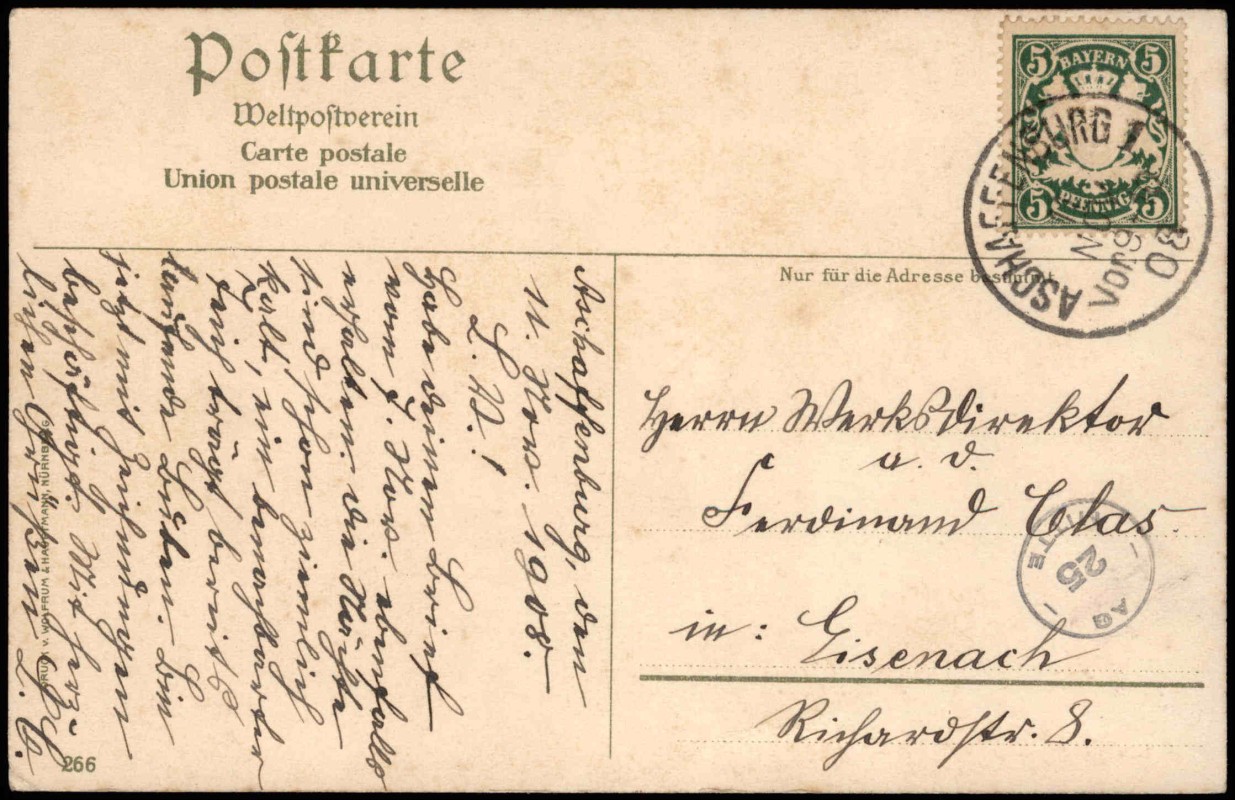 Postkarte
Weltpostverein
Carte postale
Union postale universelle
5 BAYERN 5
5 PFENNIG 5
ASCHAFFENBURG 1
NOV
Vor 9-
08
Nur für die Adresse bestimmt
Aschaffenburg, den
11. Nov. 1908.
L. W.!
Habe deinen Brief
vom 7. Nov. ebenfalls
erhalten. Die Nächte
sind schon ziemlich
kalt, ein benachbarter
Teich trägt bereits
laufende Buben. Bin
jetzt mit Zeichnungen
beschäftigt. Mit herz-
lichen Grüßen
Herrn Werksdirektor
a. d.
Ferdinand Clas
in: Eisenach
Richardstr. 8.
25
AG
DRUCK V. WOLFRUM & HAUPTMANN, NÜRNBERG.
266